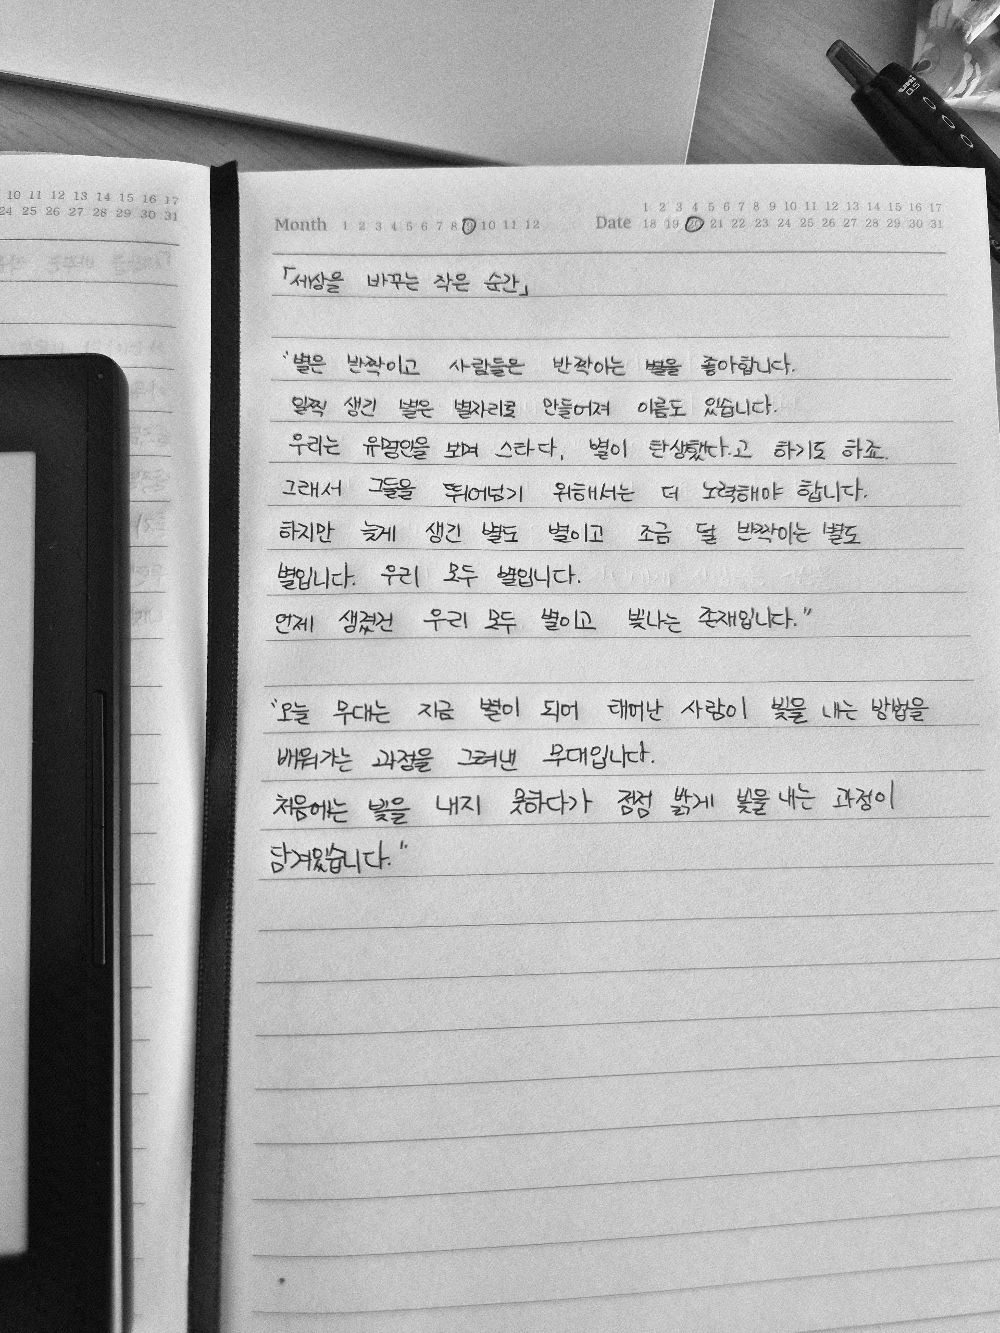 10 11 12 13 14 15 16 17
24 25 26 27 28 29 30 31
uni
0.5
1 2 3 4 5 6 7 8 9 10 11 12 13 14 15 16 17
Month 1 2 3 4 5 6 7 8 9 10 11 12 Date 18 19 20 21 22 23 24 25 26 27 28 29 30 31
「세상을 바꾸는 작은 순간」
"별은 반짝이고 사람들은 반짝이는 별을 좋아합니다.
일찍 생긴 별은 별자리로 만들어져 이름도 있습니다.
우리는 유명인을 보며 스타다, 별이 탄생했다.고 하기도 하죠.
그래서 그들을 뛰어넘기 위해서는 더 노력해야 합니다.
하지만 늦게 생긴 별도 별이고 조금 덜 반짝이는 별도
별입니다. 우리 모두 별입니다.
언제 생겼건 우리 모두 별이고 빛나는 존재입니다."
"오늘 무대는 지금 별이 되어 태어난 사람이 빛을 내는 방법을
배워가는 과정을 그려낸 무대입니다.
처음에는 빛을 내지 못하다가 점점 밝게 빛을 내는 과정이
담겨있습니다."